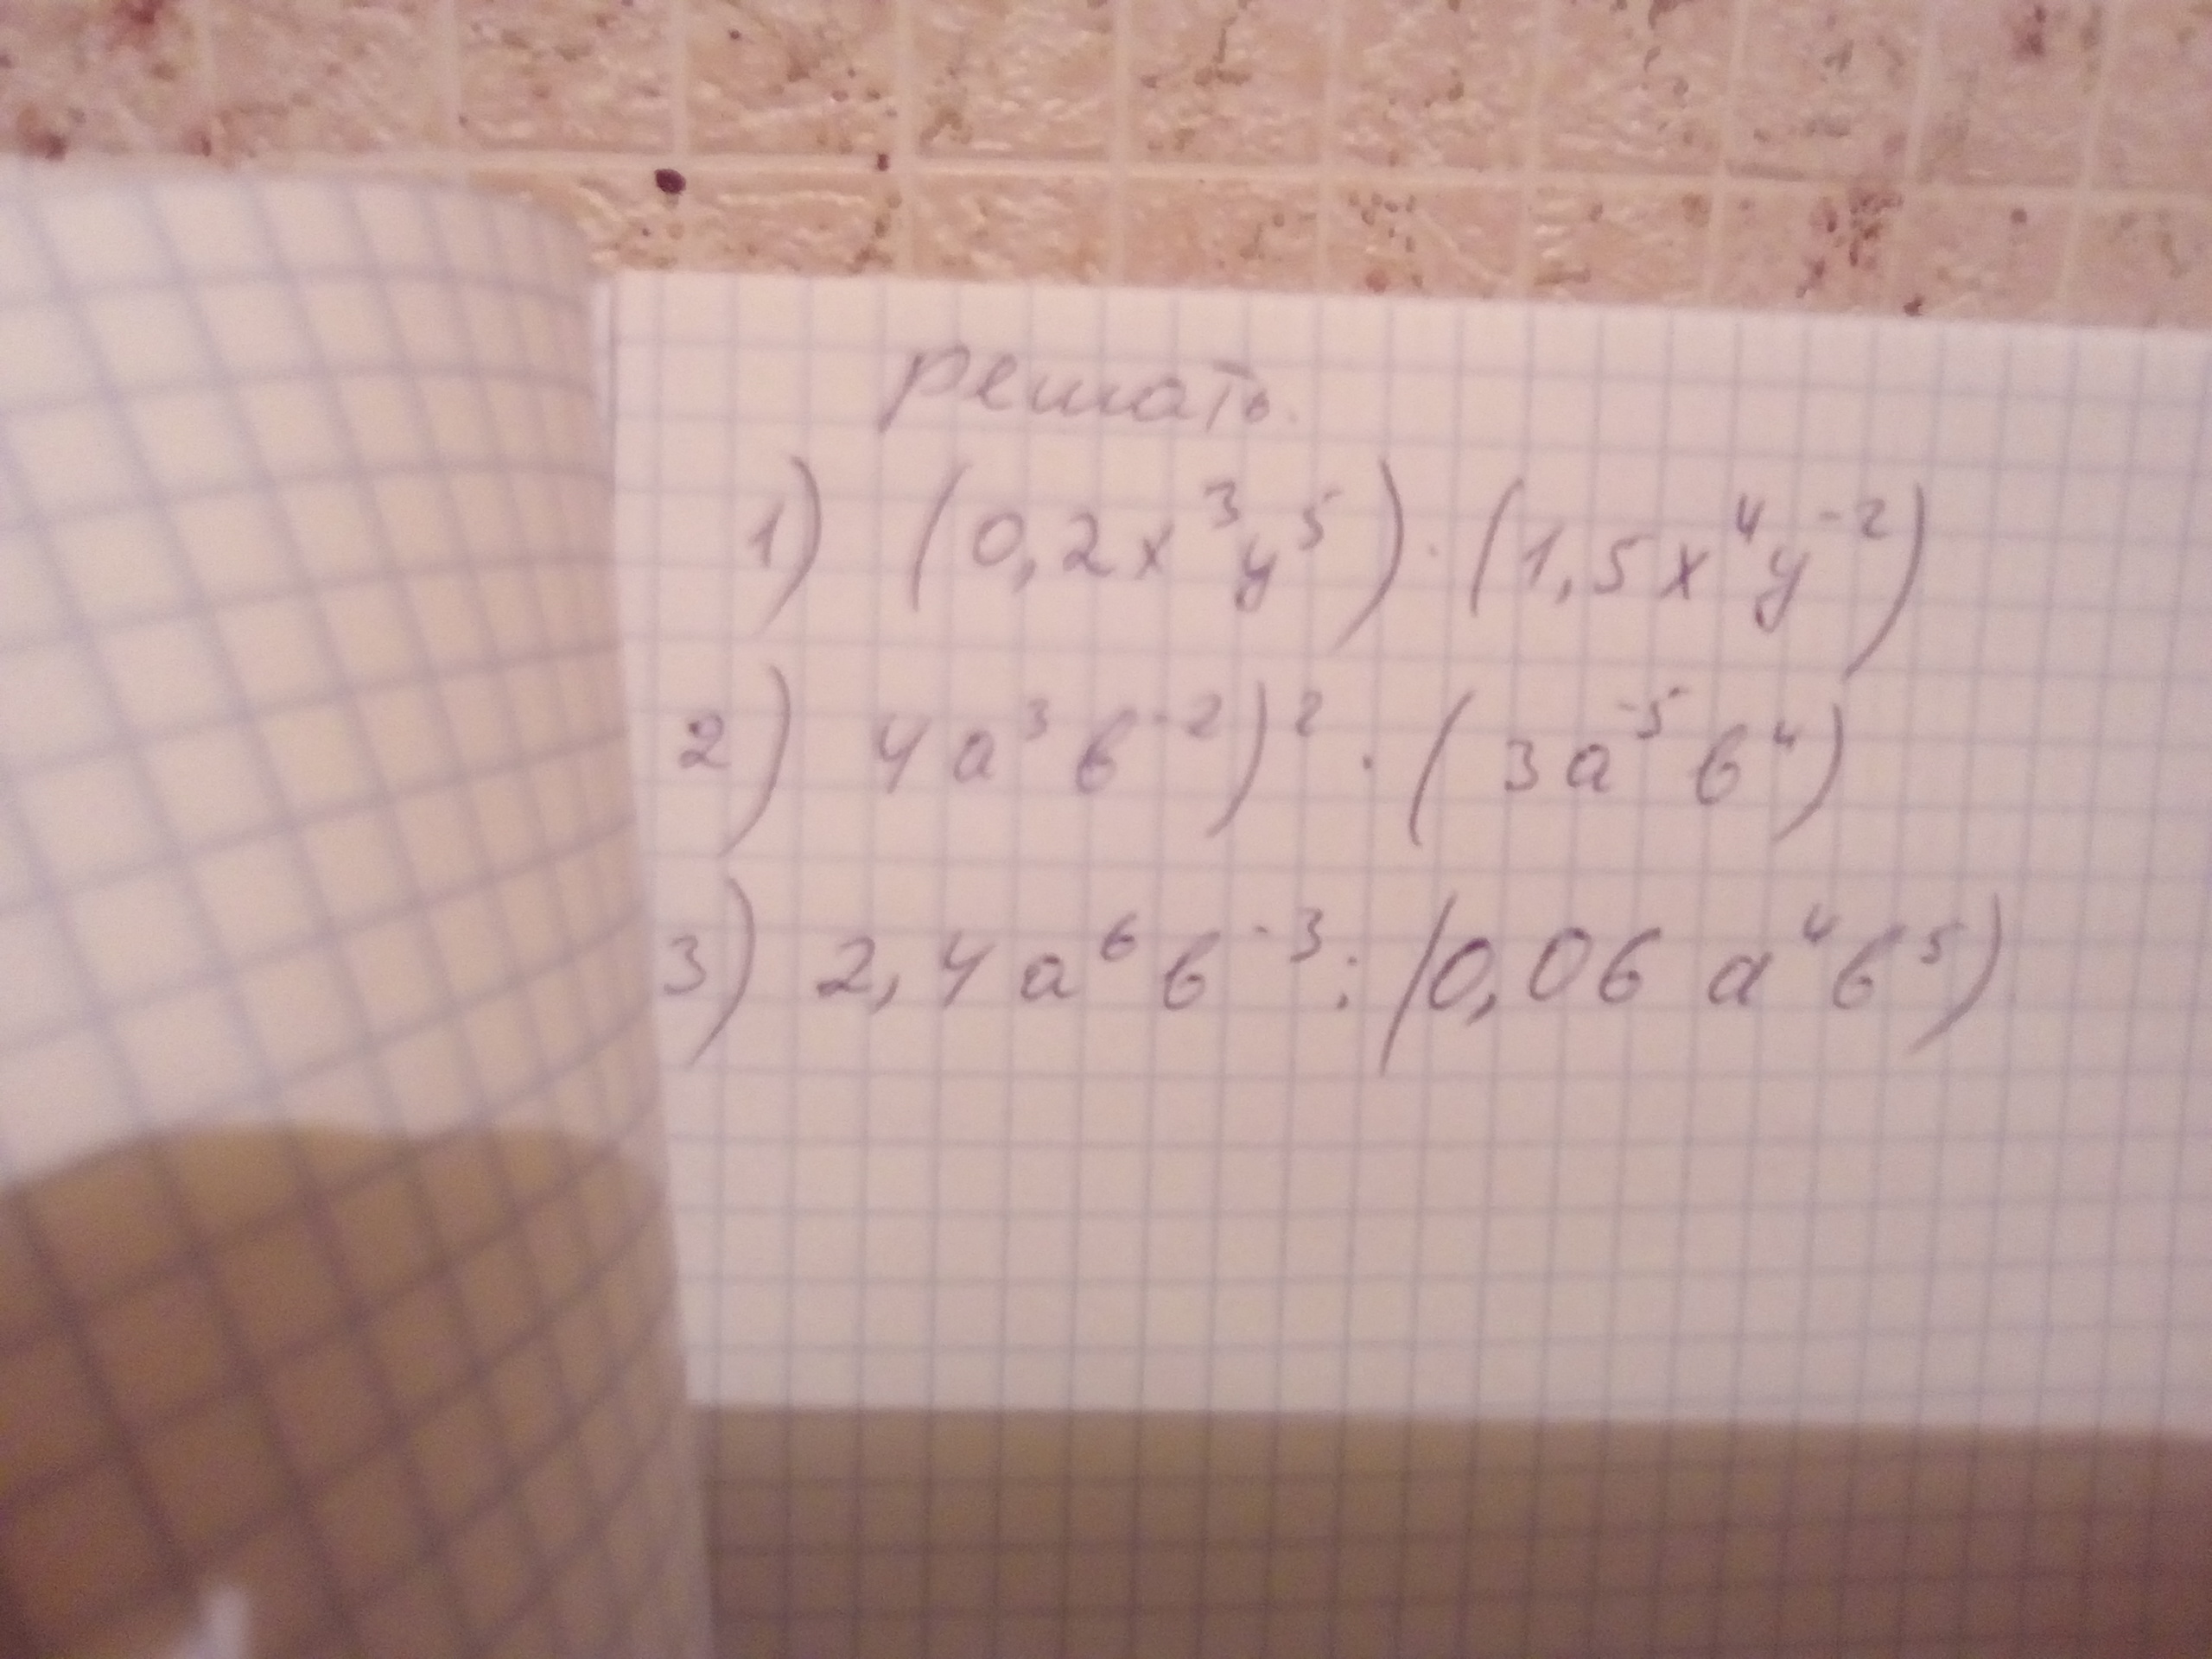 решать.
1) (0,2x³y⁵)·(1,5x⁴y⁻²)
2) 4a³b⁻²)²·(3a⁻⁵b⁴)
3) 2,4a⁶b⁻³:(0,06 a⁴b⁵)